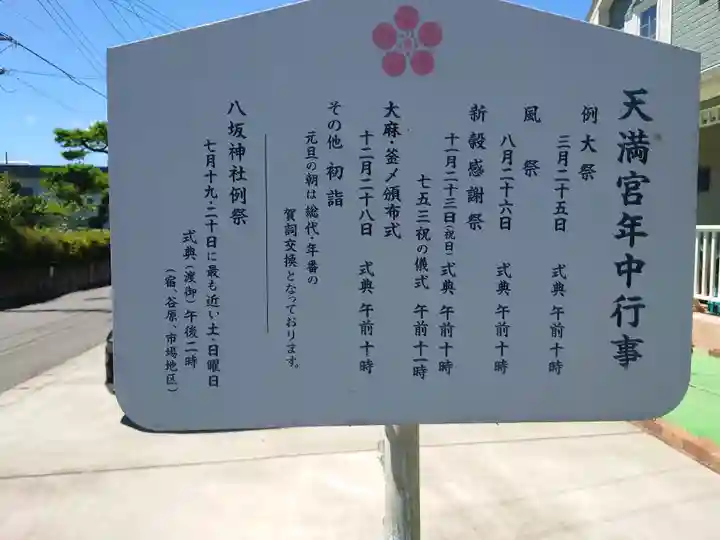 天満宮年中行事
例大祭
三月二十五日 式典 午前十時
風祭
八月二十六日 式典 午前十時
新穀感謝祭
十一月二十三日(祝日) 式典 午前十時
七五三祝の儀式 午前十一時
大麻・釜〆頒布式
十二月二十八日 式典 午前十時
その他 初詣
元旦の朝は総代・年番の
賀詞交換となっております。
八坂神社例祭
七月十九・二十日に最も近い土・日曜日
式典(渡御)午後二時
(宿、谷原、市場地区)